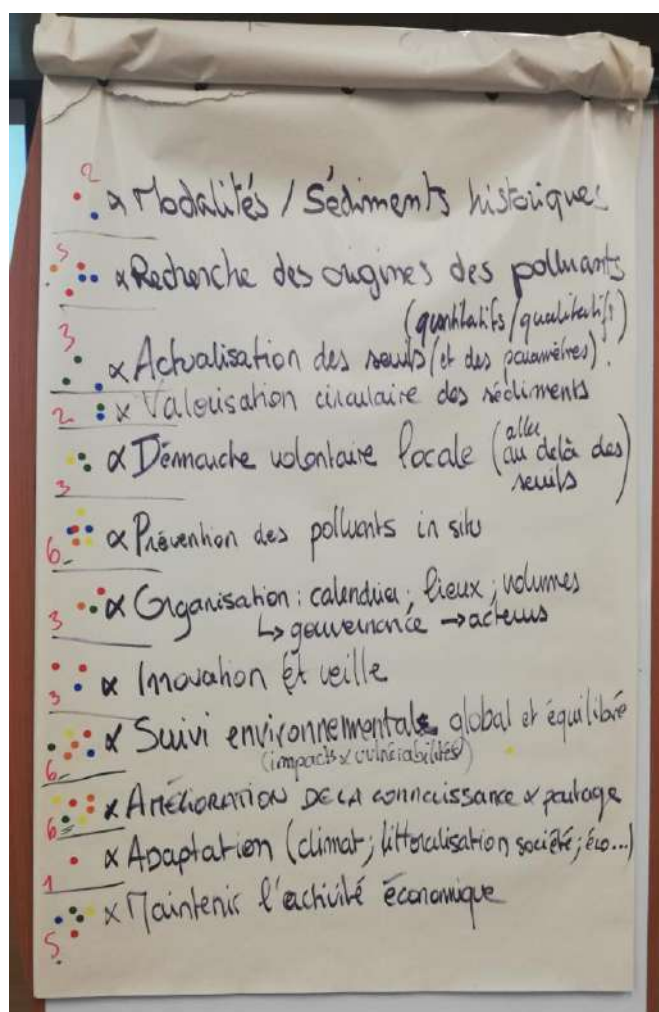 2 ∝ Modalités / Sédiments historiques
5 ∝ Recherche des origines des polluants
(quantitatifs/qualitatifs)
3 ∝ Actualisation des seuils (et des paramètres).
2 ∝ Valorisation circulaire des sédiments
3 ∝ Démarche volontaire locale (aller au delà des seuils)
6 ∝ Prévention des polluants in situ
3 ∝ Organisation : calendrier ; lieux ; volumes
↳ gouvernance → acteurs
3 ∝ Innovation et veille
6 ∝ Suivi environnemental global et équilibré
(impacts ∝ vulnérabilités)
6 ∝ AMÉLIORATION DE LA connaissance ∝ partage
1 ∝ Adaptation (climat ; littoralisation société ; éco...)
5 ∝ Maintenir l'activité économique